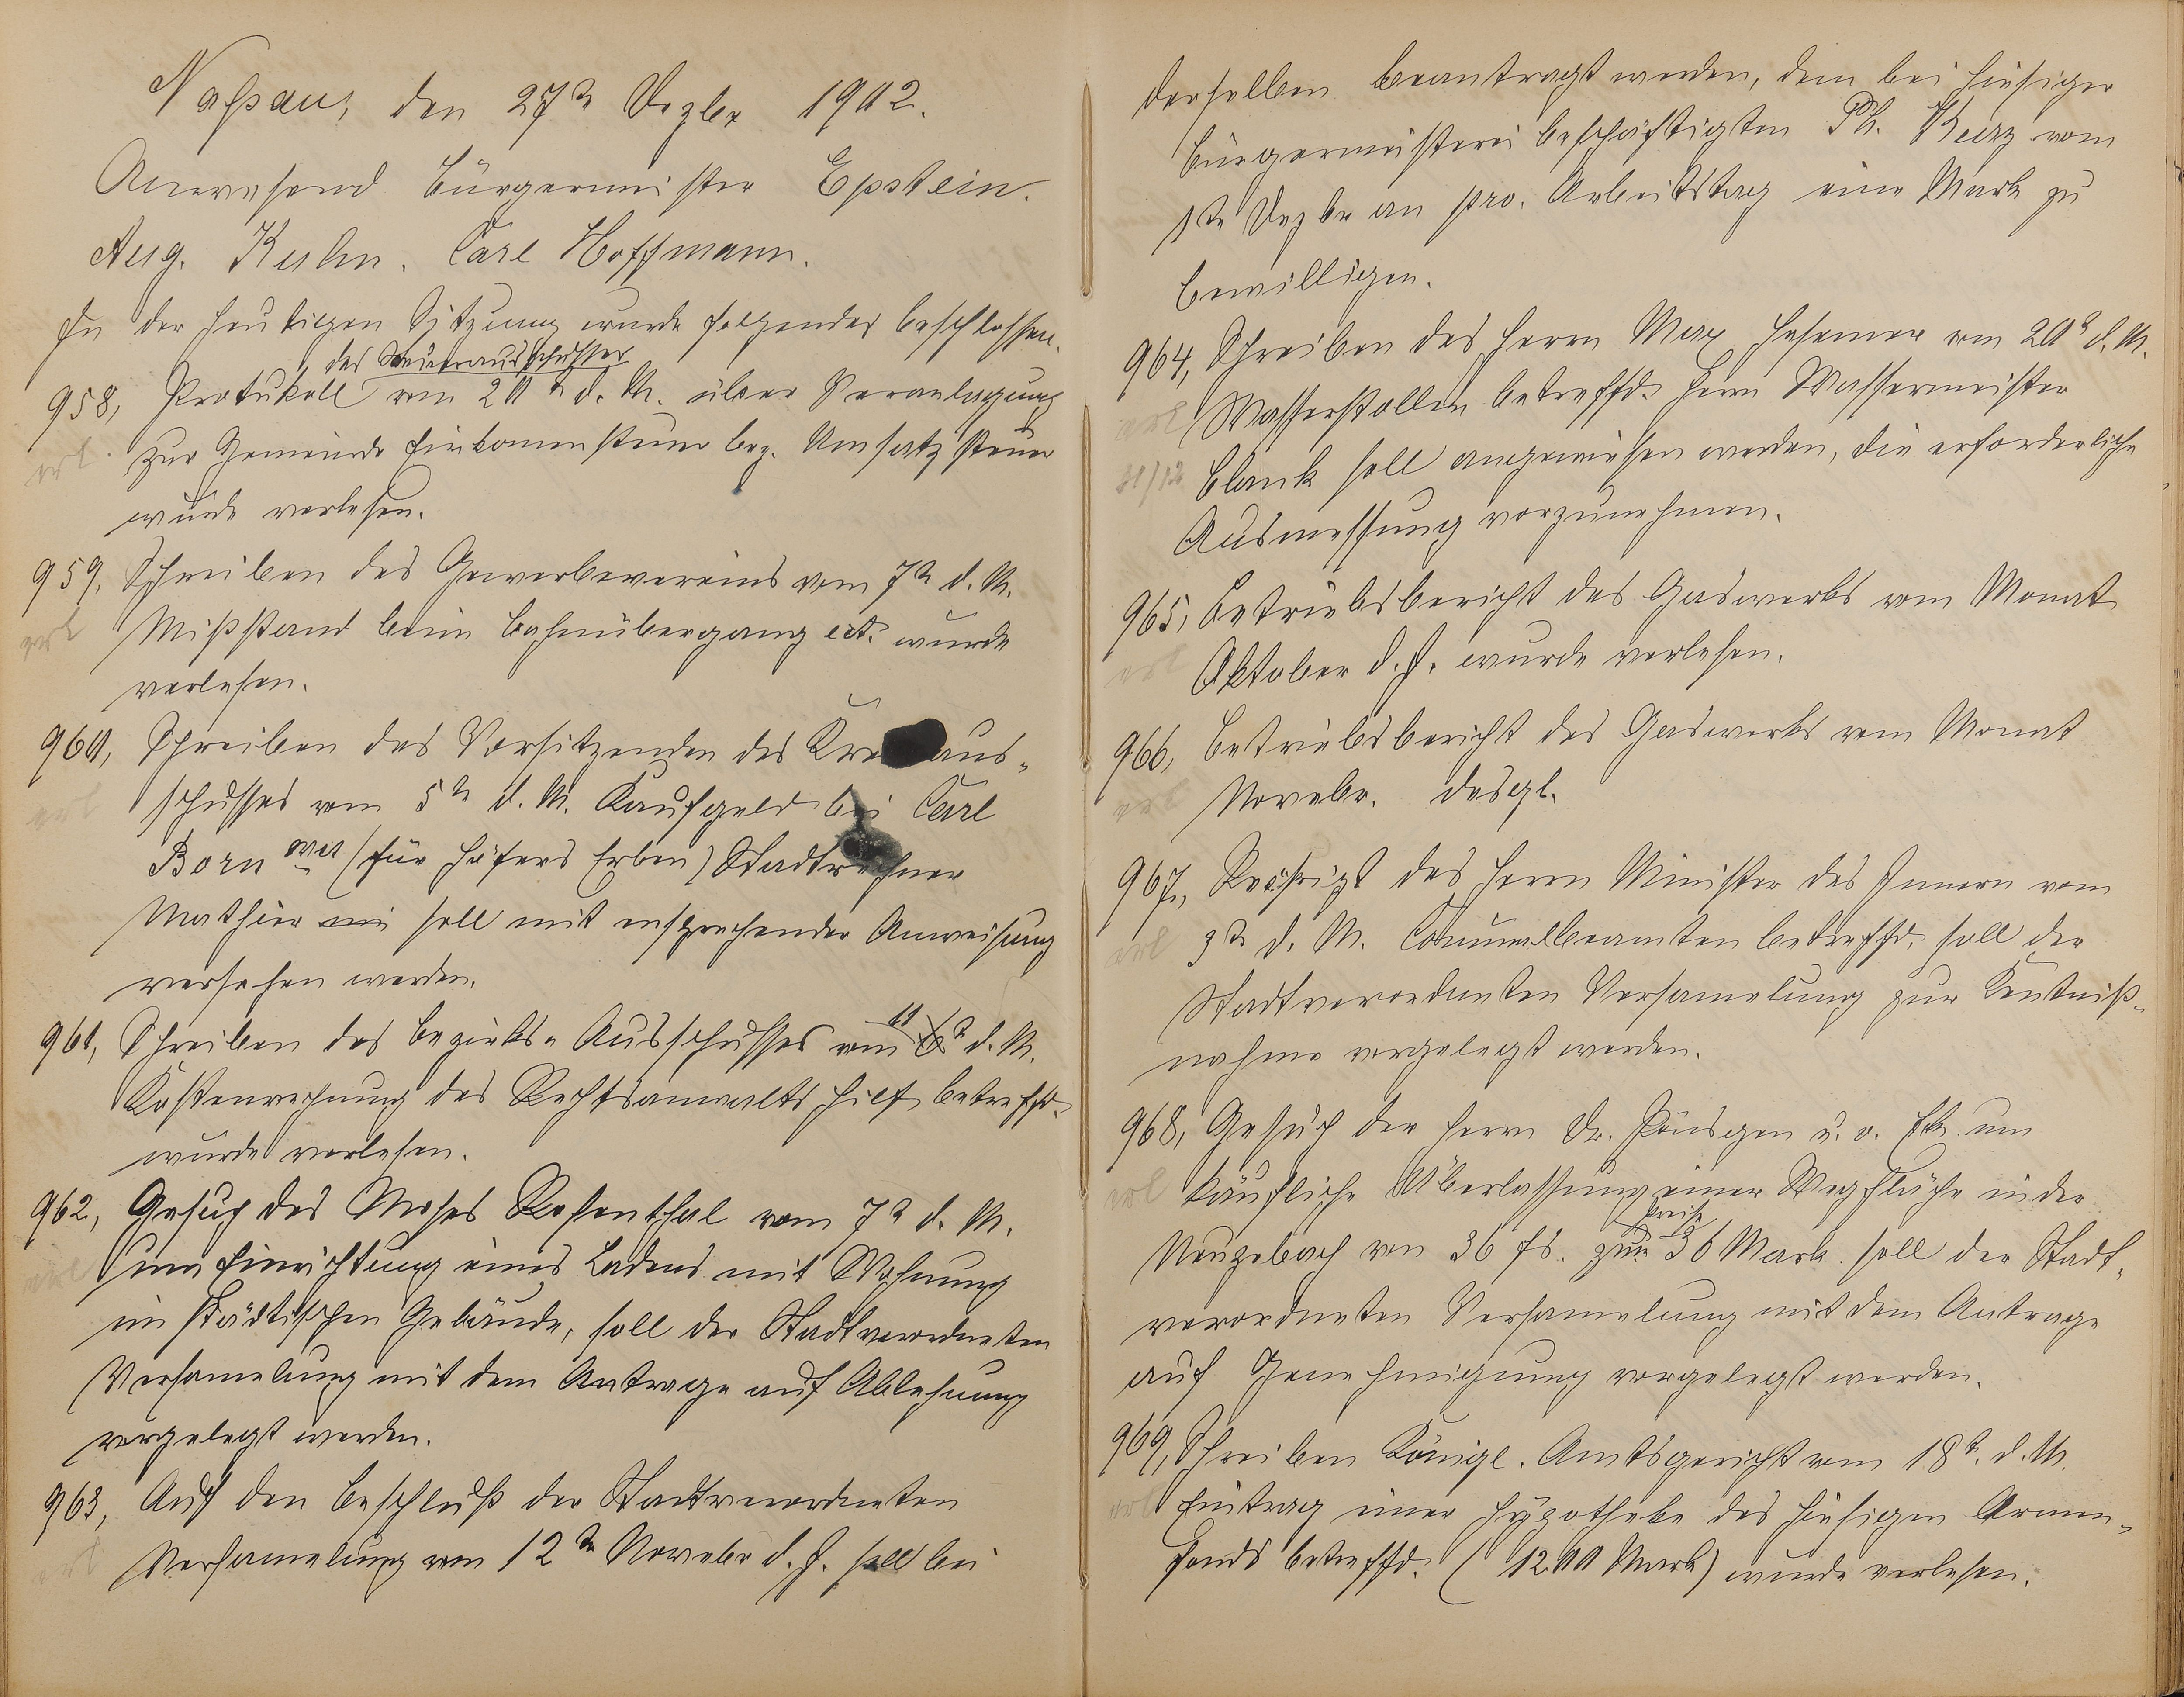 Naßau, den 27ten Dezbr 1902.
Anwesend Bürgermeister Epstein.
Aug. Kuhn. Carl Hoffmann.
In der heutigen Sitzung wurde folgendes beschlossen.
des Steuerausschusses
958, Protukoll vom 20t d. M. über Veranlagung
erl. zur Gemeinde Einkommensteuer bez. Umsatzsteuer
wurde verlesen.
959, Schreiben des Gewerbevereins vom 7ten d. M.
erl Mißstand beim Bahnübergang ect. wurde
verlesen.
960, Schreiben des Vorsitzenden des Kreisaus-
erl schusses vom 5ten d. M. Kaufgeld bei Carl
Born (für Höfers Erben) Stadtrechner
Mathier soll mit ensprechender Anweisung
versehen werden.
961, Schreiben des Bezirks-Ausschusses vom 11 6t d. M.
Kostenrechnung des Rechtsanwalts Hilf betreffd.
wurde verlesen.
962, Gesuch des Moses Rosenthal vom 7t d. M.
erl um Einrichtung eines Ladens mit Wohnung
im städtischen Gebäude, soll der Stadtverordneten
Versamelung mit dem Antrage auf Ablehnung
vorgelegt werden.
963, Auf den Beschluß der Stadtverordneten
erl Versamelung vom 12ten Novebr d. J. soll bei
derselben beantragt werden, dem bei hiesiger
Bürgermeisterei beschäftigten Ph. Kurz vom
1ten Dezbr an pro. Arbeitstag eine Mark zu
bewilligen.
964, Schreiben des Herrn Max Hesemer vom 20t d. M.
erl Wasserstollen betreffd. Herr Wassermeister
31/12 Blank soll angewiesen werden, die erforderliche
Ausmessung vorzunehmen.
965, Betriebsbericht des Gaswerks vom Monat
erl Oktober d. J. wurde verlesen.
966, Betriebsbericht des Gaswerks vom Monat
erl Novebr. desgl.
967, Rescript des Herrn Minister des Innern vom
erl 3ten d. M. Communalbeamten betreffd. soll der
Stadtverordneten Versamelung zur Kentniß-
nahme vorgelegt werden.
968, Gesuch der Herrn Dr. Pönsgen u. v. Eck um
erl käufliche Überlassung einer Wegfläche in der
Preise
Neuzebach von 36 fs. zum 36 Mark soll der Stadt-
verordneten Versamelung mit dem Antrage
auf Genehmigung vorgelegt werden.
969, Schreiben Königl. Amtsgericht vom 18t. d. M.
erl Eintrag einer Hypotheke des hiesigen Armen-
fonds betreffd. (1200 Mark) wurde verlesen.